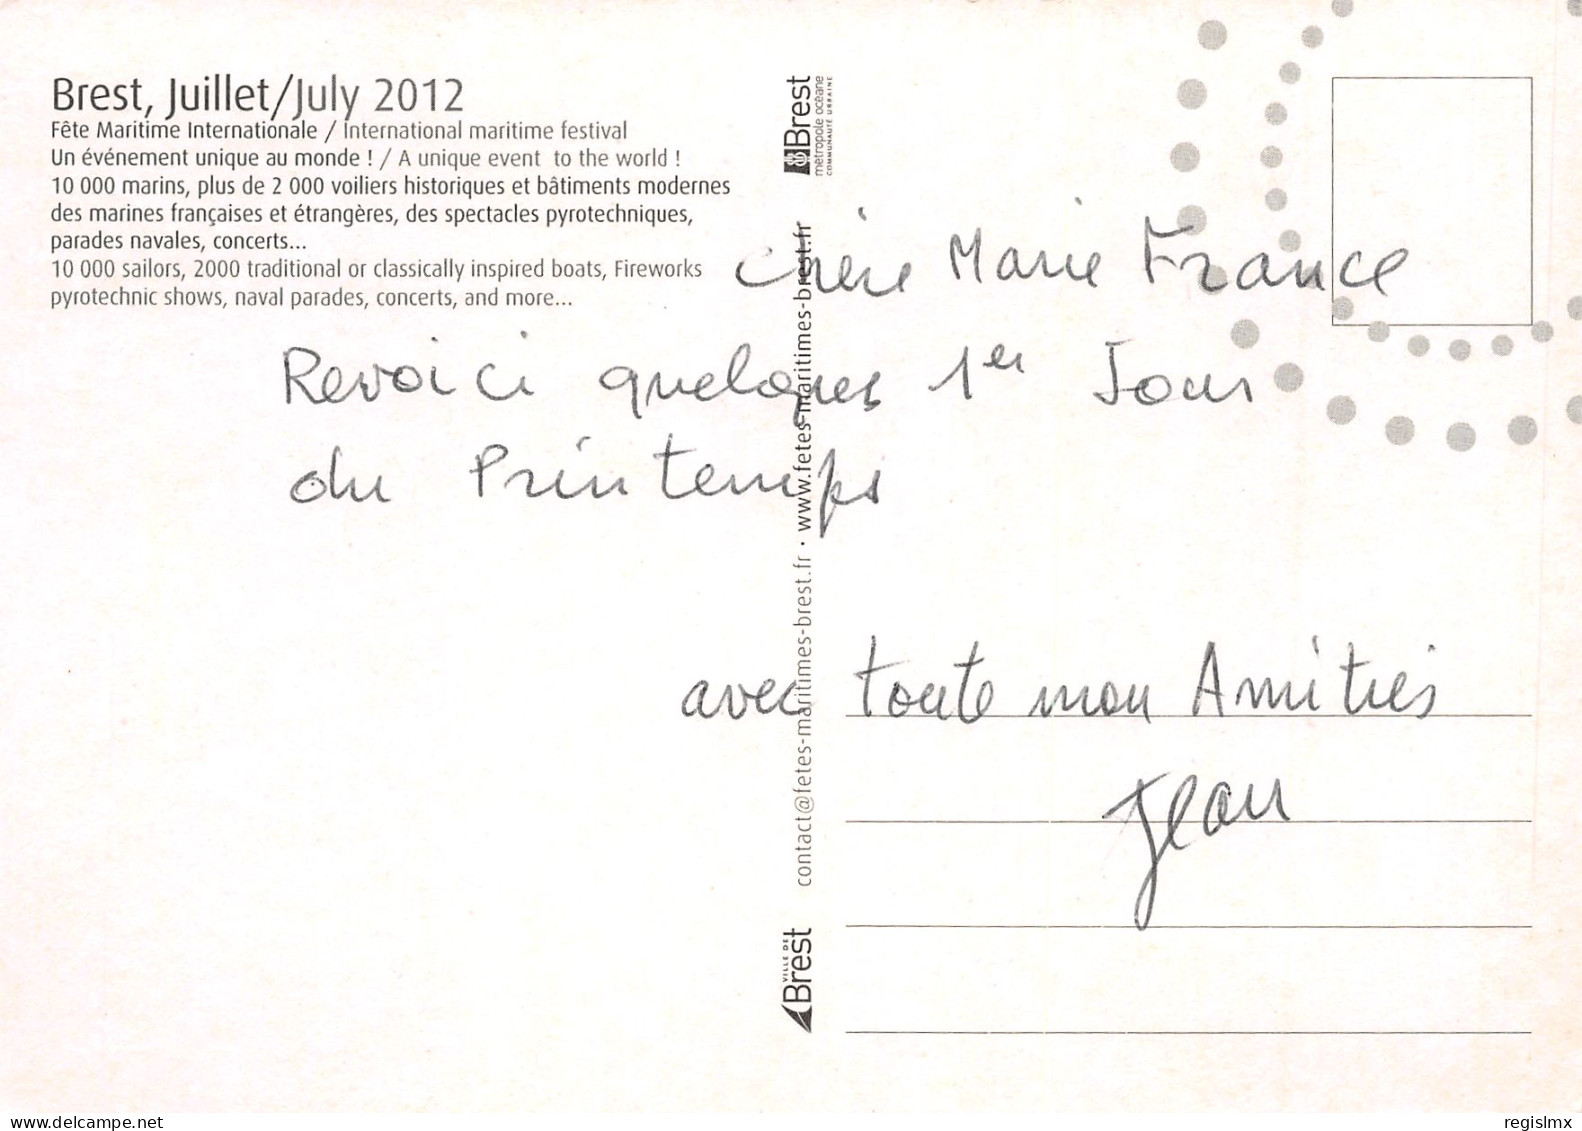 Brest, Juillet/July 2012
Fête Maritime Internationale / International maritime festival
Un événement unique au monde ! / A unique event to the world !
10 000 marins, plus de 2 000 voiliers historiques et bâtiments modernes
des marines françaises et étrangères, des spectacles pyrotechniques,
parades navales, concerts...
10 000 sailors, 2000 traditional or classically inspired boats, Fireworks
pyrotechnic shows, naval parades, concerts, and more...
Brest
métropole océane
COMMUNAUTÉ URBAINE
contact@fetes-maritimes-brest.fr · www.fetes-maritimes-brest.fr
VILLE DE
Brest
chère Marie France
Revoici quelques 1er Jour
du Printemps
avec toute mon Amitiés
Jean
delcampe.net
regislmx